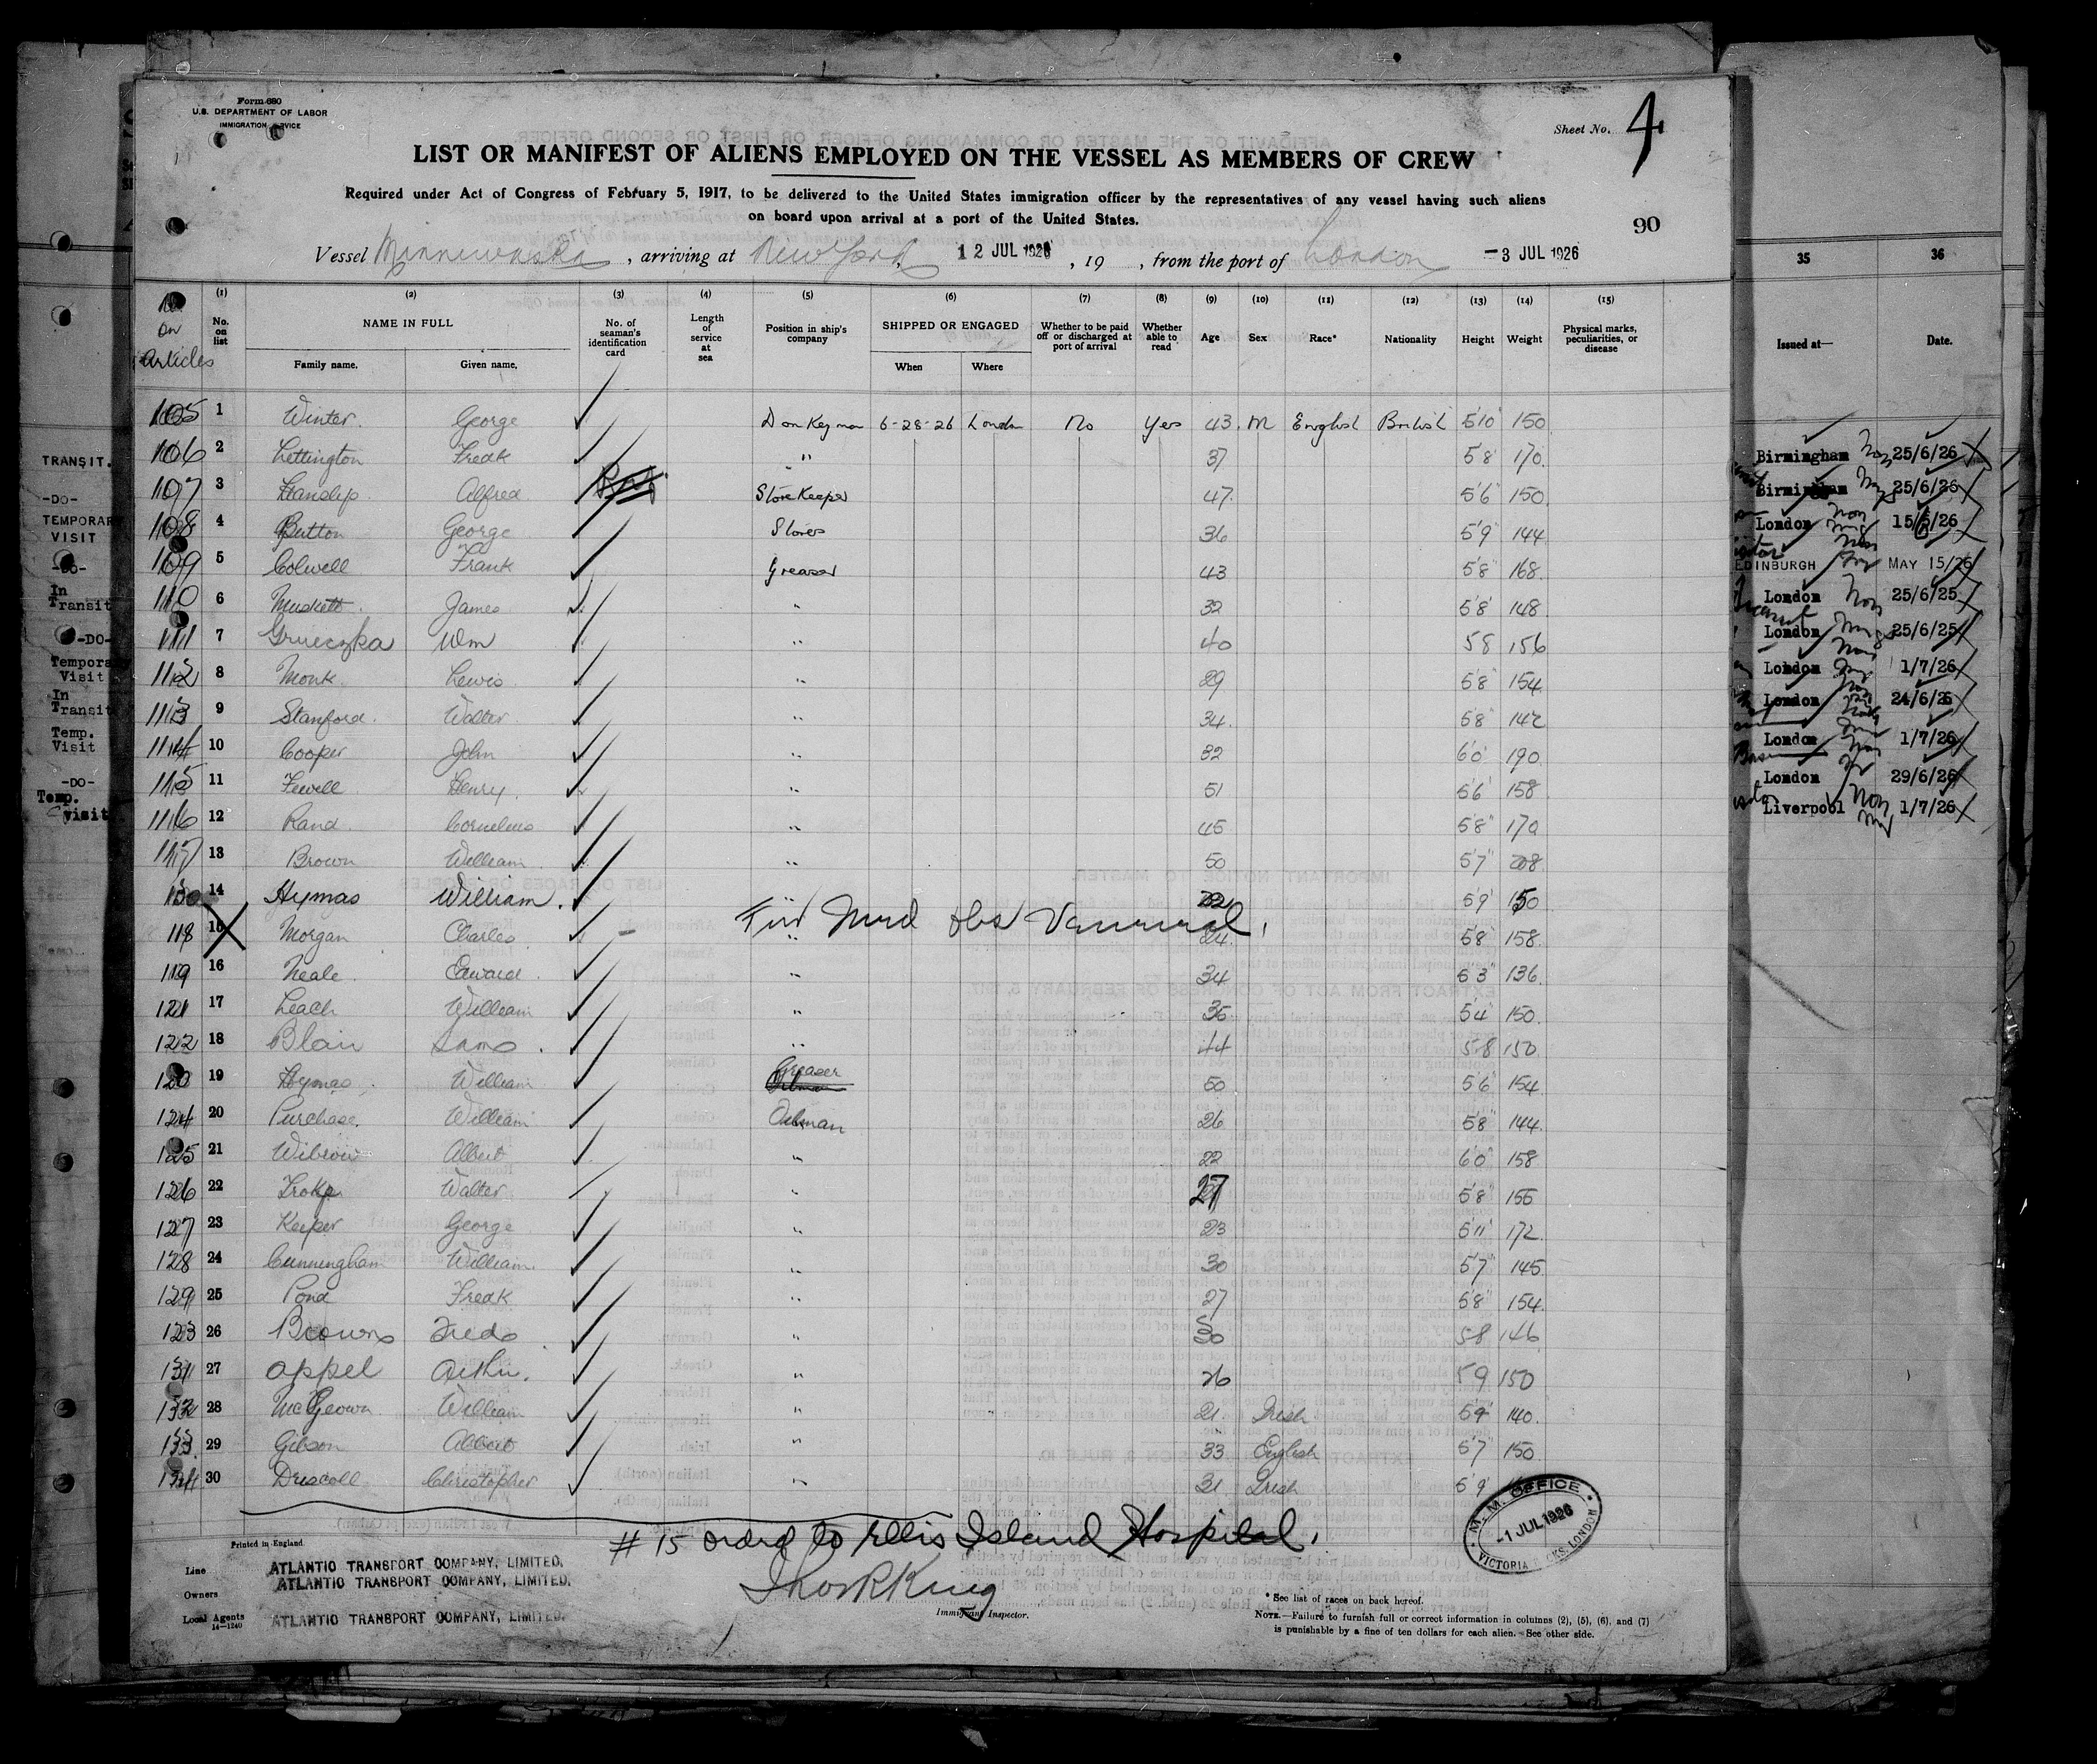 Form 680
U.S. DEPARTMENT OF LABOR
IMMIGRATION SERVICE
Sheet No. 4
LIST OR MANIFEST OF ALIENS EMPLOYED ON THE VESSEL AS MEMBERS OF CREW
Required under Act of Congress of February 5, 1917, to be delivered to the United States immigration officer by the representatives of any vessel having such aliens
on board upon arrival at a port of the United States.
90
Vessel Minnewaska, arriving at New York, 12 JUL 1926, 19 , from the port of London -3 JUL 1926
No. on Articles (1) No. on list (2) NAME IN FULL Family name. Given name. (3) No. of seaman's identification card (4) Length of service at sea (5) Position in ship's company (6) SHIPPED OR ENGAGED When Where (7) Whether to be paid off or discharged at port of arrival (8) Whether able to read (9) Age (10) Sex (11) Race* (12) Nationality (13) Height (14) Weight (15) Physical marks, peculiarities, or disease
105 1 Winter George Donkeyman 6-28-26 London No Yes 43 M English British 5'10" 150
106 2 Lettington Fredk " 37 5'8" 170
107 3 Alfred Storekeeper 47 5'6" 150
108 4 Button George Stores 36 5'9" 144
109 5 Colwell Frank Greaser 43 5'8" 168
110 6 Muskett James " 32 5'8" 148
111 7 Grueczka Wm " 40 5 8 156
112 8 Monk Lewis " 29 5'8" 154
113 9 Stanford Walter " 34 5'8" 142
114 10 Cooper John " 32 6'0" 190
115 11 Fewell Henry " 51 5'6" 158
116 12 Rand Cornelius " 45 5'8" 170
117 13 Brown William " 50 5'7" 208
14 Hymas William " 5'9" 150
118 15 Morgan Charles " 24 5'8" 158
119 16 Neale Edward " 34 5'3" 136
121 17 Leach William " 35 5'4" 150
122 18 Blair " 44 5 8 150
120 19 Hymas William Greaser 50 5'6" 154
124 20 Purchase William Oilman 26 5'8" 144
125 21 Albert " 22 6'0" 158
126 22 Walter " 27 5'8" 155
127 23 Keeper George " 23 5'11" 172
128 24 Cunningham William " 30 5'7" 145
129 25 Pond Fredk " 27 5'8" 154
123 26 Browns Fredo " 30 5 8 146
131 27 Appel Arthur " 26 5 9 150
132 28 McGeown William " 21 Irish 5'9" 140
133 29 Gibson Albert " 33 English 5'7" 150
134 30 Driscoll Christopher " 21 Irish 5'9"
# 15 ordrd to Ellis Island Hospital.
Immigrant Inspector.
M. M. OFFICE
-1 JUL 1926
VICTORIA DOCKS LONDON
Printed in England
Line ATLANTIC TRANSPORT COMPANY, LIMITED.
Owners ATLANTIC TRANSPORT COMPANY, LIMITED.
Local Agents ATLANTIC TRANSPORT COMPANY, LIMITED.
14-1240
* See list of races on back hereof.
NOTE.—Failure to furnish full or correct information in columns (2), (5), (6), and (7)
is punishable by a fine of ten dollars for each alien. See other side.
TRANSIT.
-DO-
TEMPORARY
VISIT
-DO-
In
Transit
-DO-
Temporary
Visit
In
Transit
Temp.
Visit
-DO-
Temp.
visit
35 36
Issued at— Date.
Birmingham 25/6/26
Birmingham 25/6/26
London 15/6/26
EDINBURGH MAY 15/26
London 25/6/25
London 25/6/25
London 1/7/26
London 24/6/26
London 1/7/26
London 29/6/26
Liverpool 1/7/26